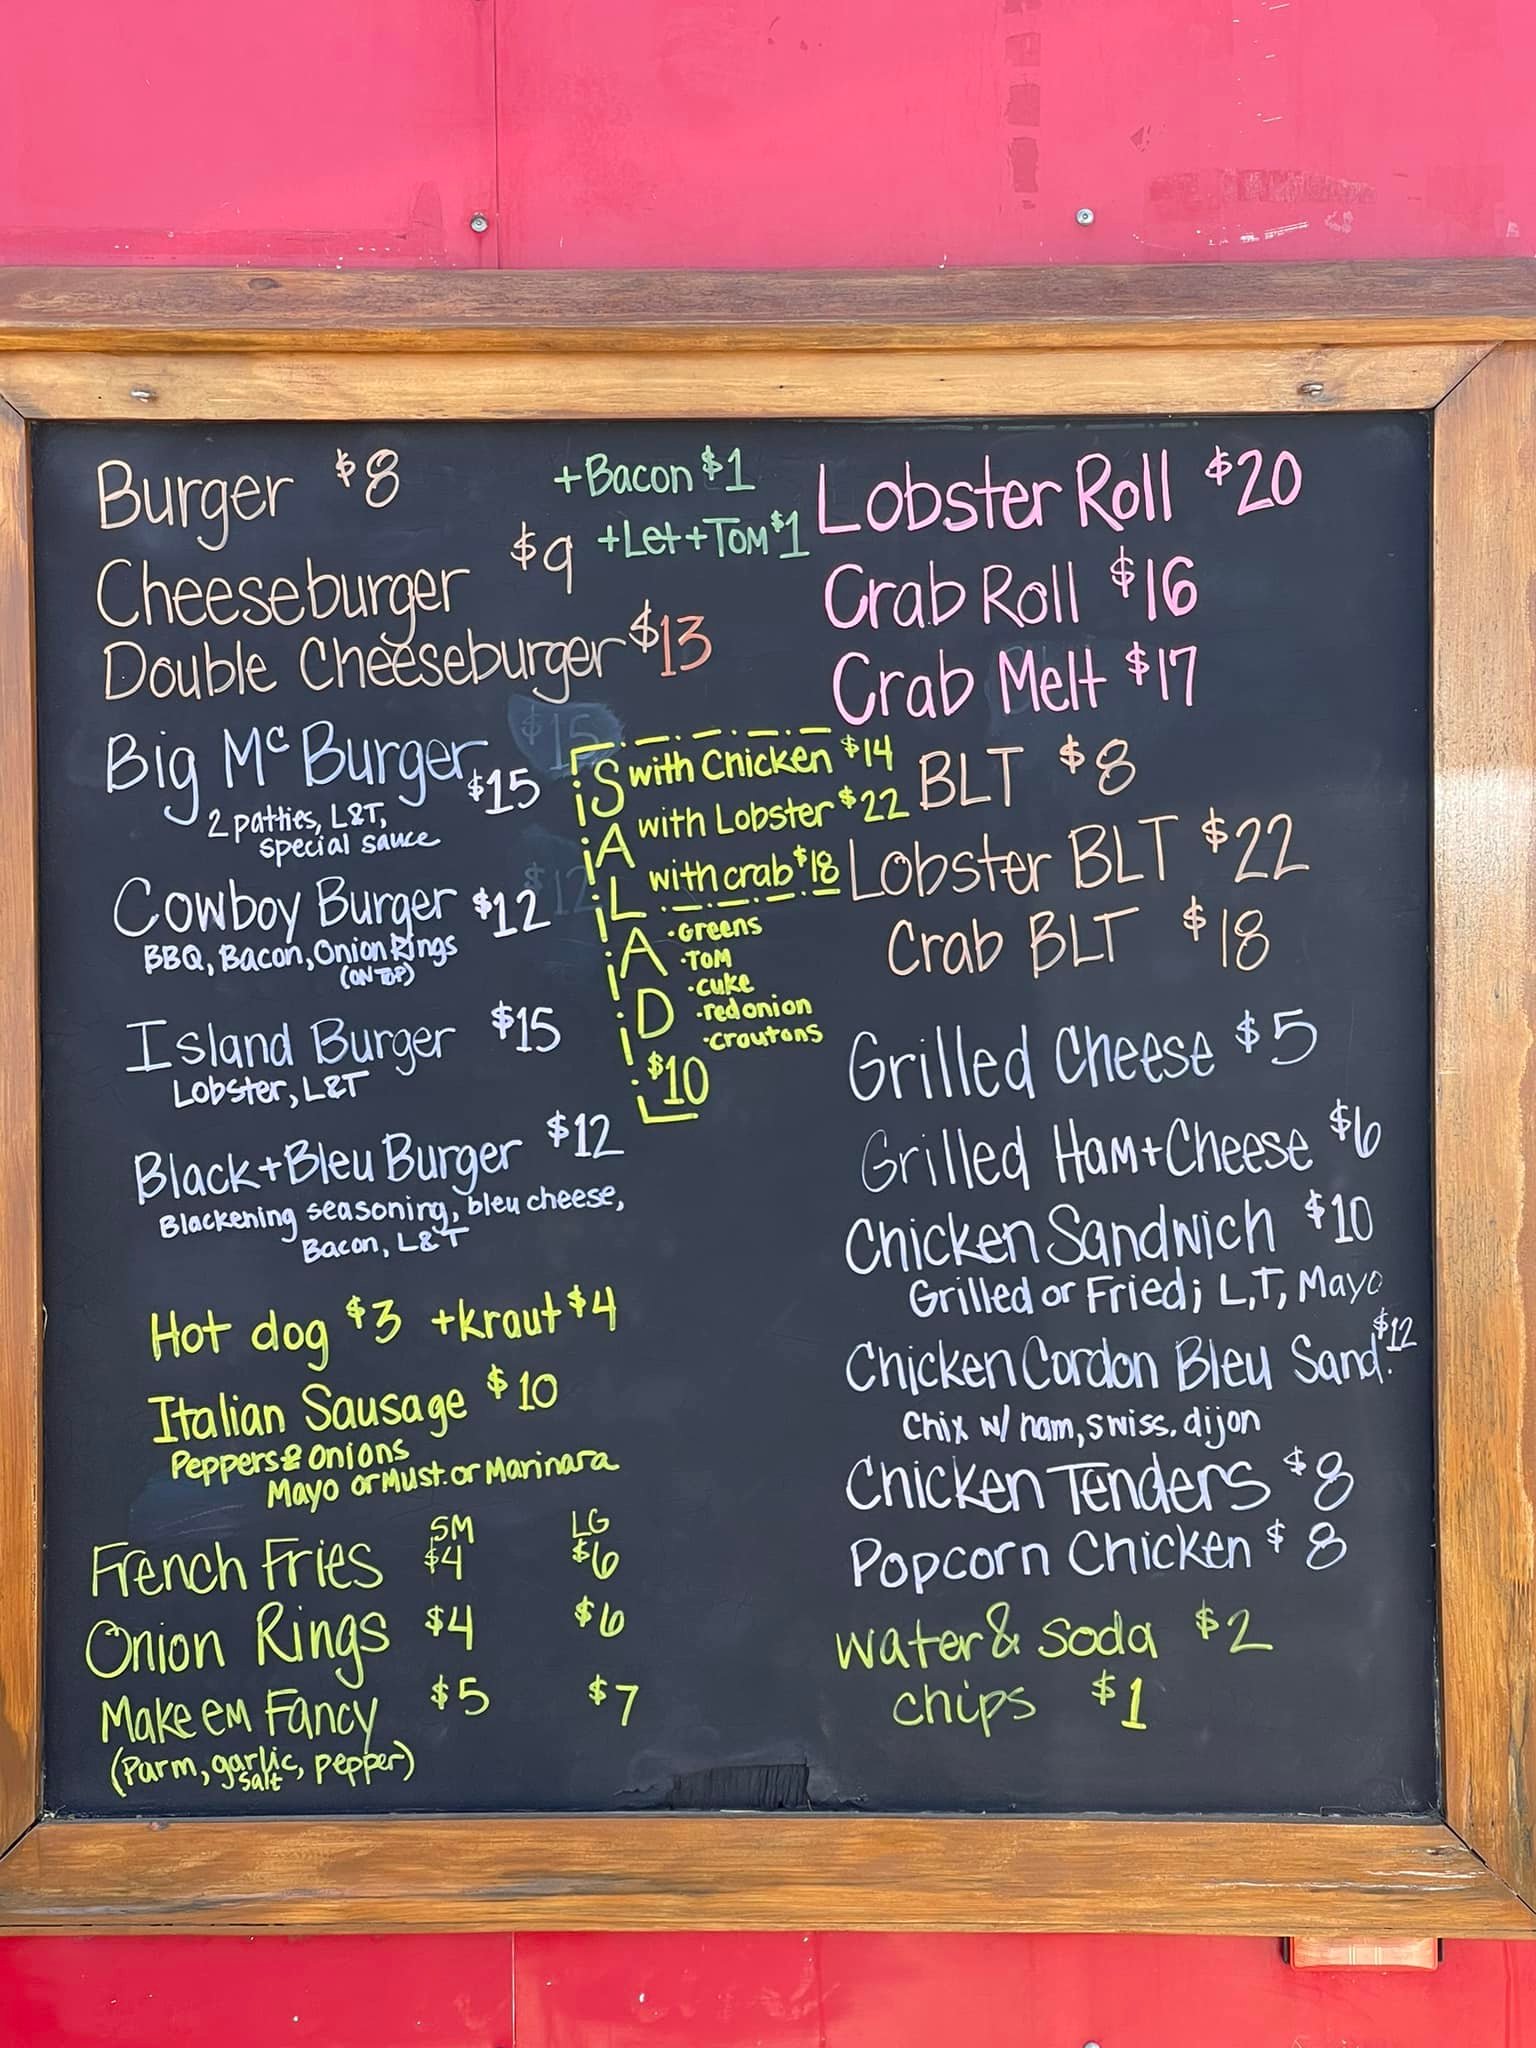 Burger $8
+Bacon $1
+Let+Tom $1
Cheeseburger $9
Double Cheeseburger $13
Big Mc Burger $15
2 patties, L&T,
special sauce
Cowboy Burger $12
BBQ, Bacon, Onion Rings
(ON TOP)
Island Burger $15
Lobster, L&T
Black+Bleu Burger $12
Blackening seasoning, bleu cheese,
Bacon, L&T
SALAD
$10
with Chicken $14
with Lobster $22
with crab $18
•Greens
•Tom
•cuke
•red onion
•croutons
Hot dog $3 +kraut $4
Italian Sausage $10
Peppers & Onions
Mayo or Must. or Marinara
SM LG
French Fries $4 $6
Onion Rings $4 $6
Make em Fancy $5 $7
(Parm, garlic salt, pepper)
Lobster Roll $20
Crab Roll $16
Crab Melt $17
BLT $8
Lobster BLT $22
Crab BLT $18
Grilled Cheese $5
Grilled Ham+Cheese $6
Chicken Sandwich $10
Grilled or Fried; L,T, Mayo
Chicken Cordon Bleu Sand. $12
Chix w/ ham, swiss, dijon
Chicken Tenders $8
Popcorn Chicken $8
water & soda $2
chips $1